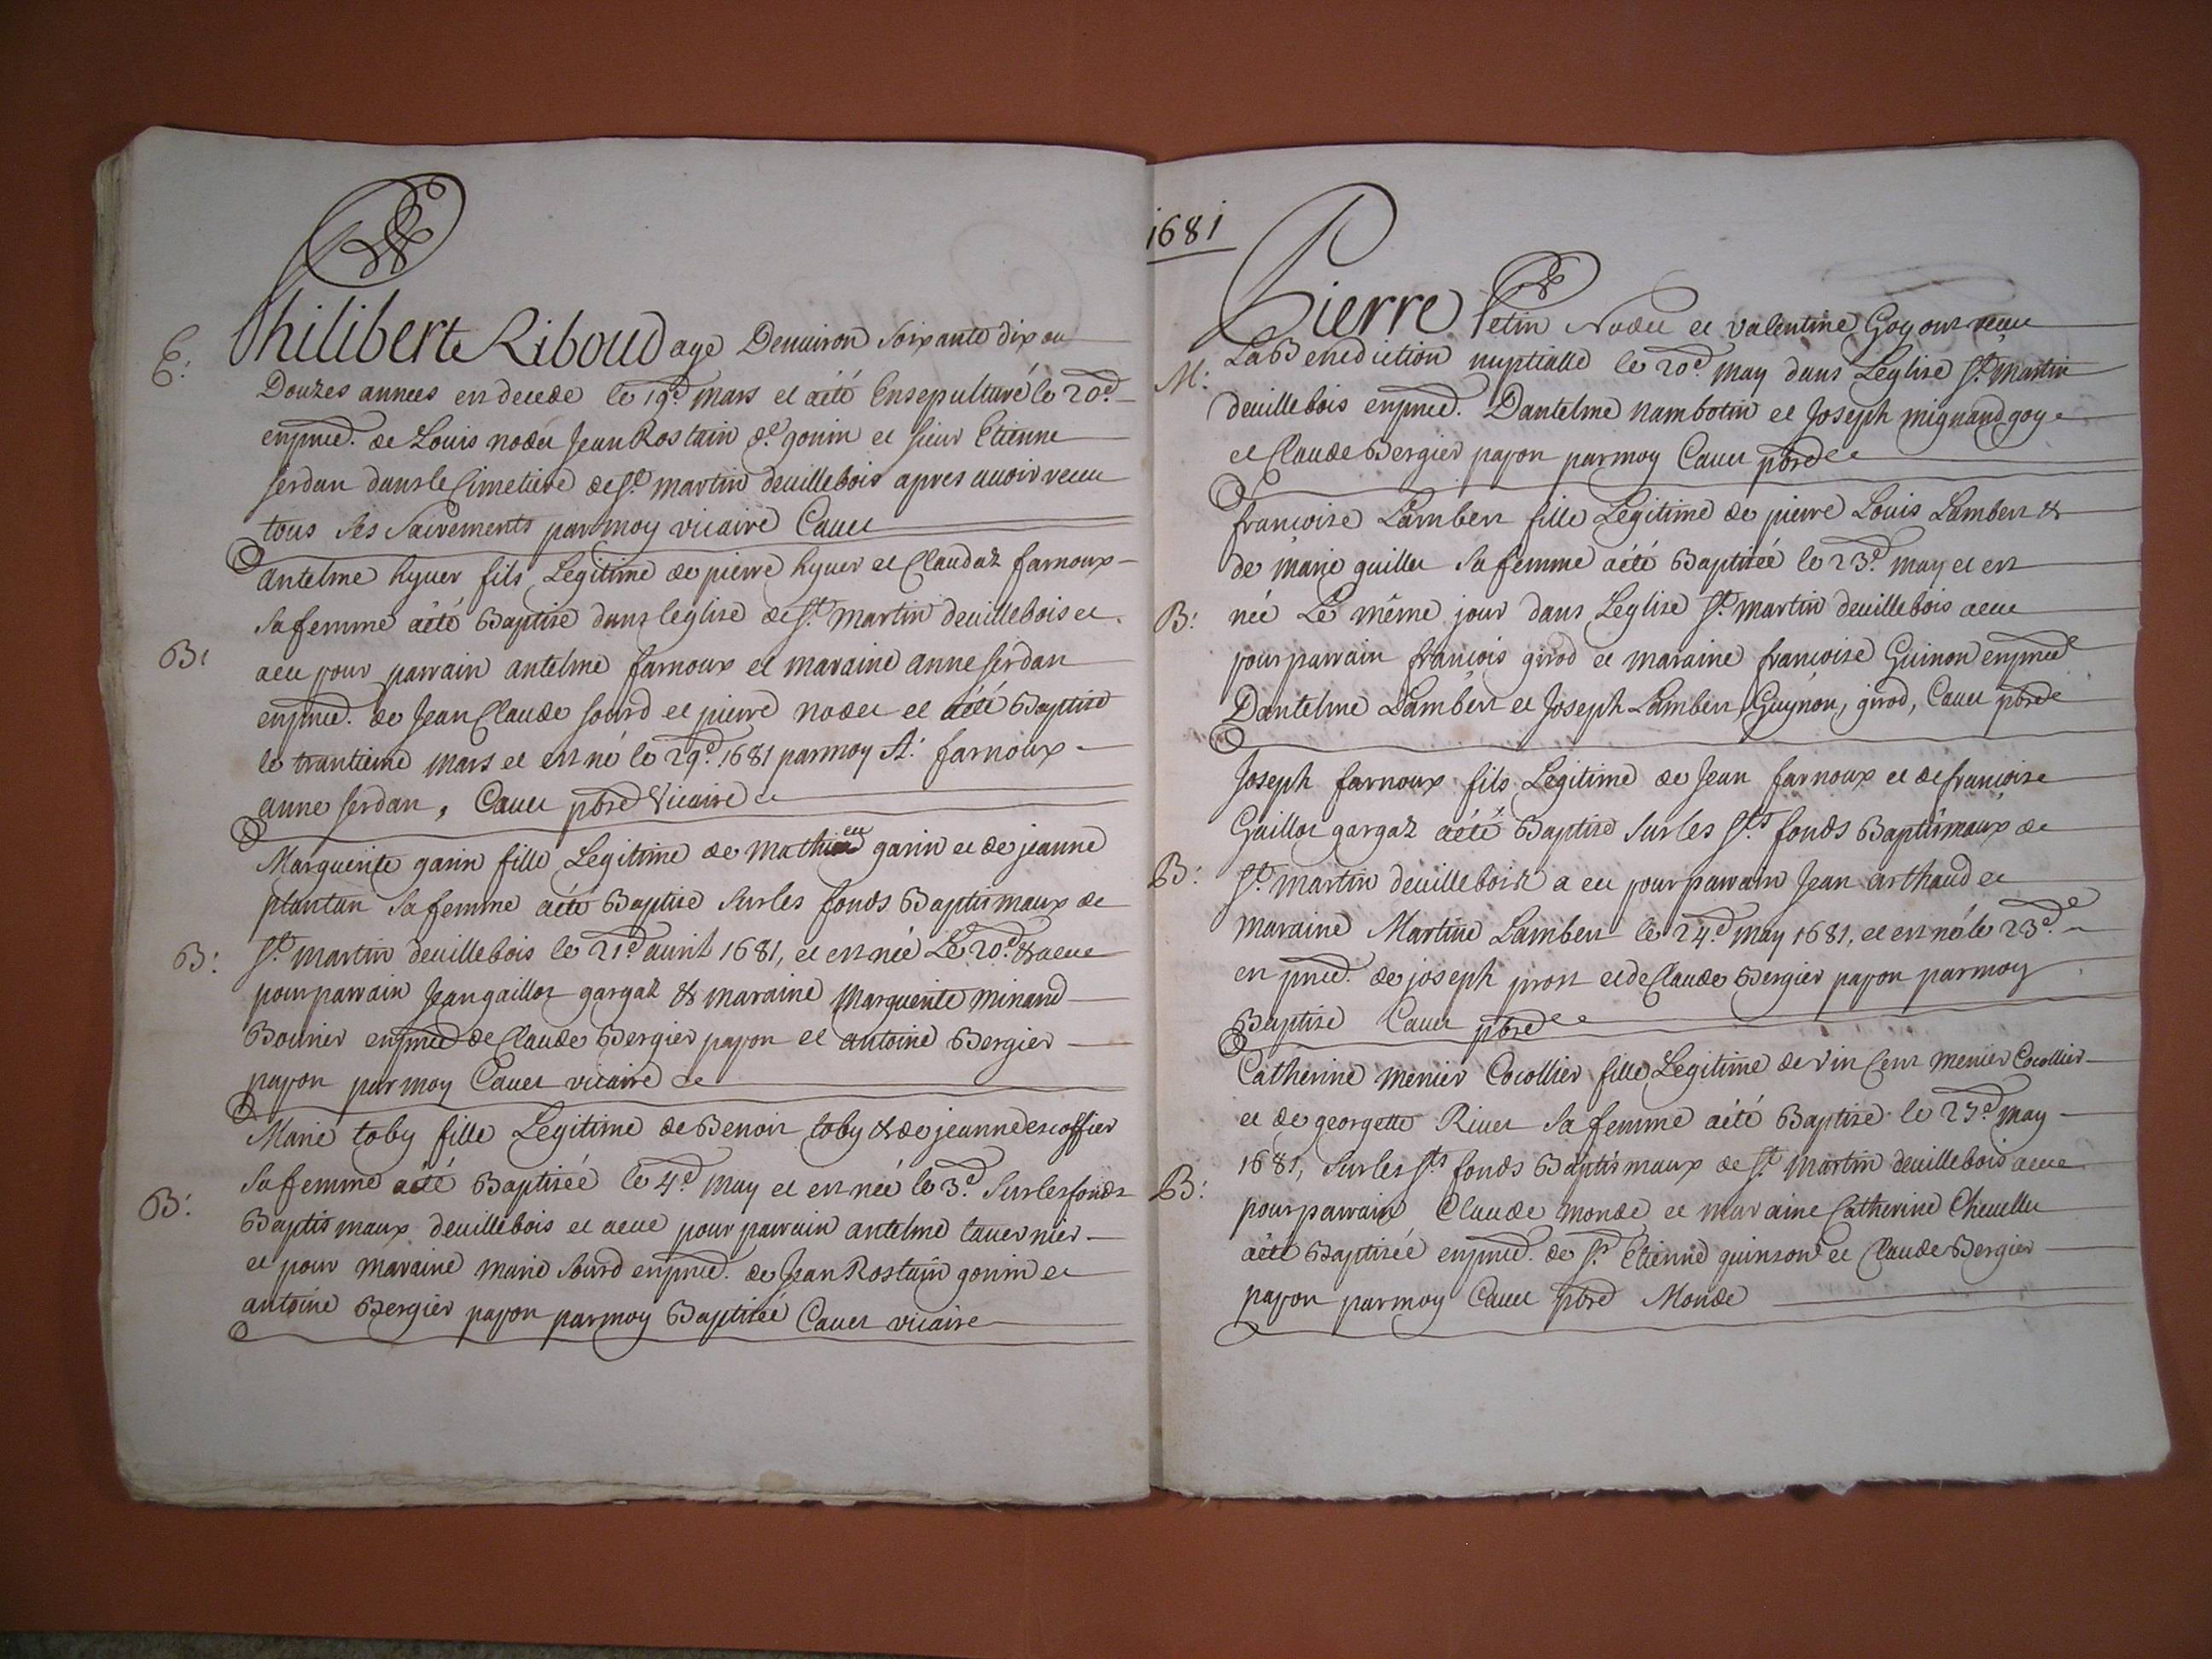 E:
Philibert Riboud age Denuiron Soixante dix ou
Douzes annees en decede le 19.e mars et aété Ensepulturé le 20.e
enpnce. de Louis nodet Jean Rostain d. gonin et sieur Etienne
serdan dans le Cimetiere de St. martin deuillebois apres auoir receu
tous ses Sacrements par moy vicaire Cauet
B:
antelme hyuer fils Legitime de pierre hyuer et Claudaz farnoux
sa femme aété Baptise dans leglise de St. martin deuillebois et
aeu pour parrain antelme farnoux et maraine anne serdan
enpnce. de Jean Claude sourd et pierre nodet et aété Baptise
le trantieme mars et est né le 29.e 1681 par moy A. farnoux
anne serdan, Cauet pbre Vicaire
B:
Marguerite garin fille Legitime de mathieu garin et de jeanne
plantan sa femme aété Baptise sur les fonds Baptismaux de
St. martin deuillebois le 21.e auril 1681, et est née Le 20.e & aeue
pour parrain Jean gaillot gargaz & maraine marguerite minand
Bounier enpnce de Claude Bergier papon et antoine Bergier
papon par moy Cauet vicaire
B:
Marie toby fille Legitime de Benoit toby & de jeanne escoffier
sa femme aété Baptiseé le 4.e may et est née le 3.e sur les fonds
Baptismaux deuillebois et aeue pour parrain antelme tauernier
et pour maraine marie sourd enpnce. de Jean Rostain gonin et
antoine Bergier papon par moy Baptiseé Cauet vicaire
1681
M:
Pierre Petin Nodet et valentine Goy ont receu
La Benediction nuptialle le 20.e may dans Leglise St. martin
deuillebois enpnce. Dantelme nambotin et Joseph mignand goy
et Claude Bergier papon par moy Cauet pbre
B:
francoise Lambert fille Legitime de pierre Louis Lambert &
de marie guillet sa femme aété Baptiseé le 23.e may et est
née Le même jour dans Leglise St. martin deuillebois aeue
pour parrain francois girod et maraine francoise Guinon enpnce
Dantelme Lambert et Joseph Lambert Guynon, girod, Cauet pbre
B:
Joseph farnoux fils Legitime de Jean farnoux et de francoise
Gaillot gargaz aété Baptise sur les Sts. fonds Baptismaux de
St. martin deuillebois a eu pour parrain Jean arthaud et
maraine Martine Lambert le 24.e may 1681, et est né le 23.e
en pnce. de joseph prost et de Claude Bergier papon par moy
Baptise Cauet pbre
B:
Catherine menier Cocollier fille Legitime de vincent menier Cocollier
et de georgette Riuet sa femme aété Baptise le 27.e may
1681, sur les Sts fonds Baptismaux de St. martin deuillebois aeue
pour parrain Claude monde et maraine Catherine Cheuellu
aété Baptiseé enpnce. de Sr. Etienne guinson et Claude Bergier
papon par moy Cauet pbre Monde